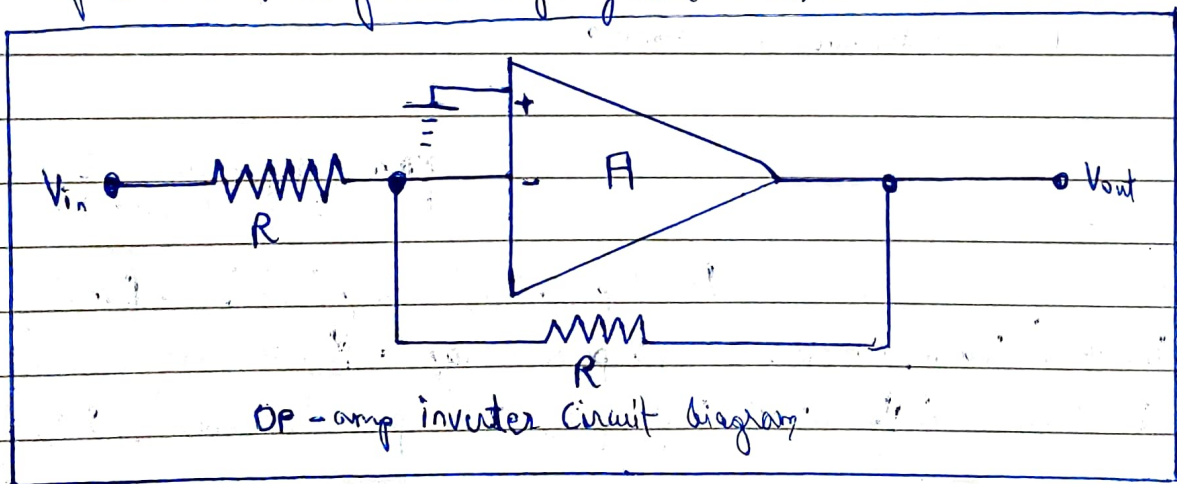 +
Vin
R
-
A
Vout
R
OP-amp inverter Circuit diagram